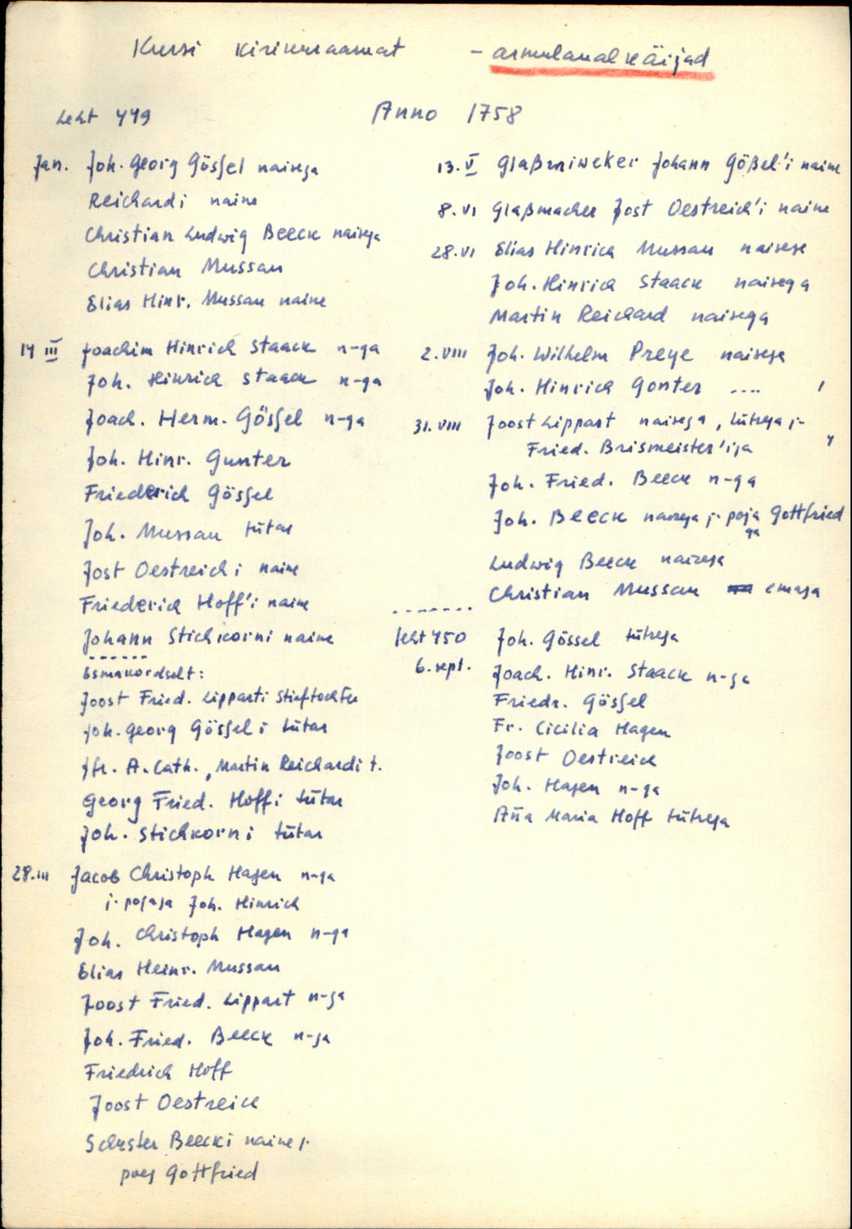 Kursi kirikuraamat - armulaual käijad
Leht 449 Anno 1758
Jan. Joh. Georg Gössel naisega
Reichardi naine
Christian Ludwig Beeck naisega
Christian Mussau
Elias Hinr. Mussau naine
14 III Joachim Hinrich Staack n-ga
Joh. Hinrich Staack n-ga
Joach. Herm. Gössel n-ga
Joh. Hinr. Gunter
Friederich Gössel
Joh. Mussau tütar
Jost Oestreichi naine
Friederich Hoff'i naine
Johann Stichkorni naine
Esmakordselt:
Joost Fried. Lipparti Stieftochter
Joh. Georg Gösseli tütar
Jfr. A. Cath., Martin Reichardi t.
Georg Fried. Hoffi tütar
Joh. Stichkorni tütar
28.III Jacob Christoph Hagen n-ga
j. pojaga Joh. Hinrich
Joh. Christoph Hagen n-ga
Elias Heinr. Mussau
Joost Fried. Lippart n-ga
Joh. Fried. Beeck n-ga
Friedrich Hoff
Joost Oestreich
Schuster Beecki naine j.
poeg Gottfried
13. V Johann Gößel'i naine
8. VI Glaßmacher Jost Oestreich'i naine
28. VI Elias Hinrich Mussau naisega
Joh. Hinrich Staack naisega
Martin Reichard naisega
2. VIII Joh. Wilhelm Preye naisega
Joh. Hinrich Gonter ....
31. VIII Joost Lippart naisega, tütrega j.
Fried. Brismeister'iga
Joh. Fried. Beeck n-ga
Joh. Beeck naisega j. pojaga Gottfried
Ludwig Beeck naisega
Christian Mussau emaga
leht 450 Joh. Gössel tütrega
6. sept. Joach. Hinr. Staack n-ga
Friedr. Gössel
Fr. Cicilia Hagen
Joost Oestreich
Joh. Hagen n-ga
Aña Maria Hoff tütrega